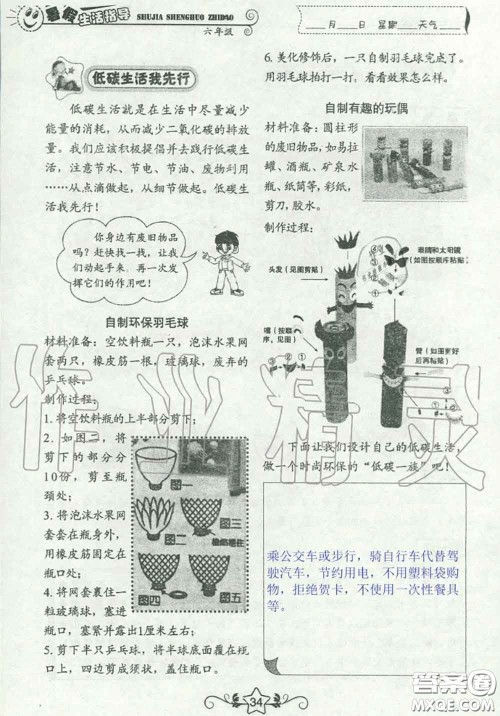 暑假生活指导
SHUJIA SHENGHUO ZHIDAO
六年级
____月____日 星期____天气____
低碳生活我先行
低碳生活就是在生活中尽量减少
能量的消耗，从而减少二氧化碳的排放
量。我们应该积极提倡并去践行低碳生
活，注意节水、节电、节油、废物利用
……从点滴做起，从细节做起。低碳生
活我先行！
你身边有废旧物品
吗？赶快找一找，让我
们动起手来，再一次发
挥它们的作用吧！
自制环保羽毛球
材料准备：空饮料瓶一只，泡沫水果网
套两只，橡皮筋一根，玻璃球，废弃的
乒乓球。
制作过程：
1. 将空饮料瓶的上半部分剪下；
2. 如图二，将
剪下的部分分
10份，剪至瓶
颈处；
3. 将泡沫水果网
套套在瓶身外，
用橡皮筋固定在
瓶口处；
4. 将网套裹住一
粒玻璃球，塞进
瓶口，塞紧并露出1厘米左右；
5. 剪下半只乒乓球，将半球底面覆在瓶
口上，四边剪成须状，盖住瓶口。
图一
图二
图三
图四
图五
6. 美化修饰后，一只自制羽毛球完成了。
用羽毛球拍打一打，看看效果怎么样。
自制有趣的玩偶
材料准备：圆柱形
的废旧物品，如易拉
罐、酒瓶、矿泉水
瓶、纸筒等，彩纸，
剪刀，胶水。
制作过程：
眼睛和太阳镜
（如图按顺序粘贴）
头发（见图剪贴）
嘴（按顺
序，见图）
臂（如图剪好
后再粘贴）
下面让我们设计自己的低碳生活，
做一个时尚环保的“低碳一族”吧！
乘公交车或步行，骑自行车代替驾
驶汽车，节约用电，不用塑料袋购
物，拒绝贺卡，不使用一次性餐具
等。
34
作业精灵
答案圈
MXQE.COM